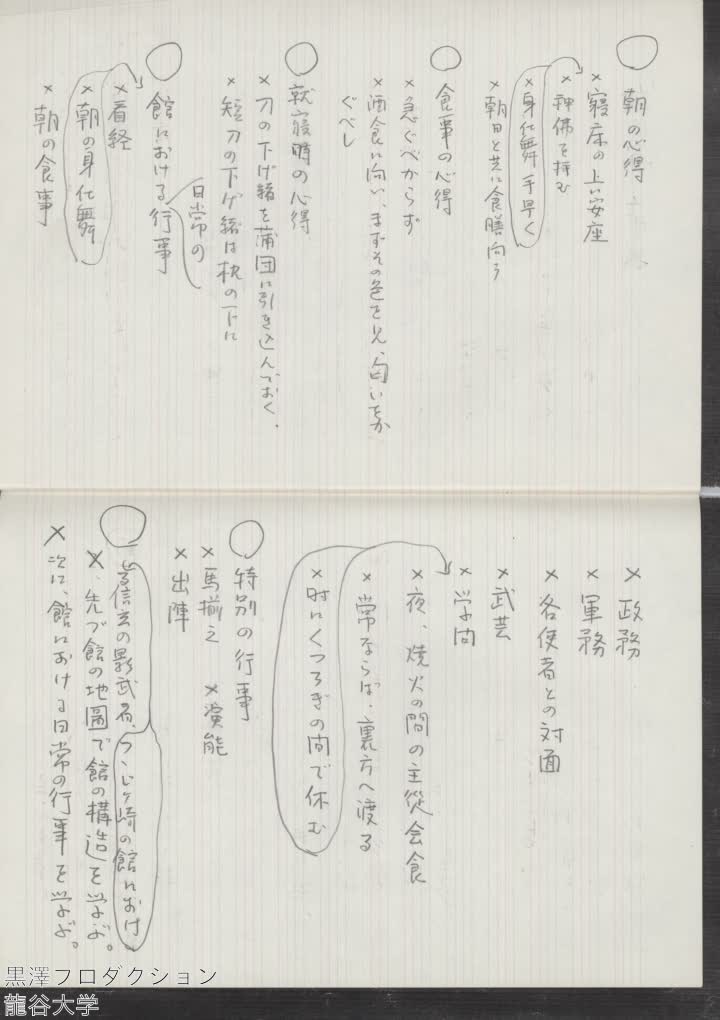 朝の心得
×寝床の上に安座
×神佛を拝む
×身仕舞手早く
×朝日と共に食膳向う
食事の心得
×急ぐべからず
×酒食に向い、まずその色を見、匂いをか
ぐべし
就寝時の心得
×刀の下げ緒を蒲団に引き込んでおく、
×短刀の下げ緒は枕の下に
日常の
館における行事
×看経
×朝の身仕舞
×朝の食事
×政務
×軍務
×各使者との対面
×武芸
×学問
×夜、焼火の間の主従会食
×常ならば、裏方へ渡る
×時にくつろぎの間で休む
特別の行事
×馬揃え ×演能
×出陣
信玄の影武者、つゝじヶ崎の館におけ
×、先づ館の地圖で館の構造を学ぶ。
×次に、館における日常の行事を学ぶ。
黒澤プロダクション
龍谷大学